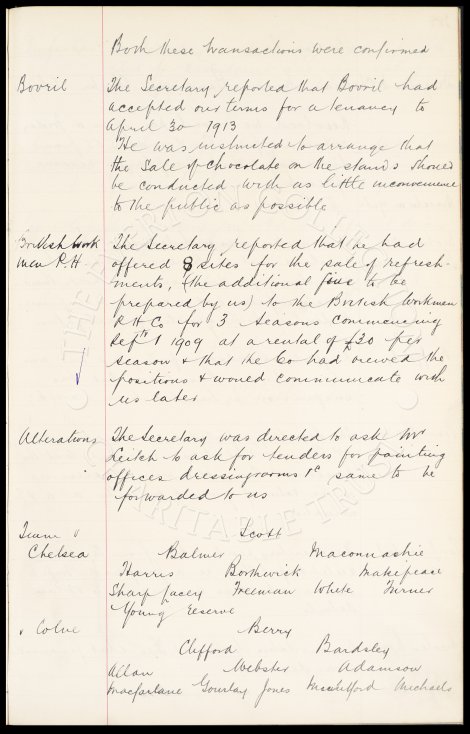 Both these transactions were confirmed
Bovril
The Secretary reported that Bovril had
accepted our terms for a tenancy to
April 30 1913
He was instructed to arrange that
the Sale of Chocolate on the stands should
be conducted with as little inconvenience
to the public as possible
British Work
men P.H.
The Secretary reported that he had
offered 8 sites for the sale of refresh-
ments, (the additional five to be
prepared by us) to the British Workmen
P H Co for 3 seasons commencing
Sept 1 1909 at a rental of £30 per
season & that the Co had viewed the
positions & would communicate with
us later
Alterations
The Secretary was directed to ask Mr
Leitch to ask for tenders for painting
offices dressingrooms &c same to be
forwarded to us
Team v
Chelsea
Scott
Balmer Maconnachie
Harris Borthwick Makepeace
Sharp Lacey Freeman White Turner
Young reserve
v Colne
Berry
Clifford Bardsley
Allan Webster Adamson
Macfarlane Gourlay Jones Michaels
THE
CHARITABLE TRUST